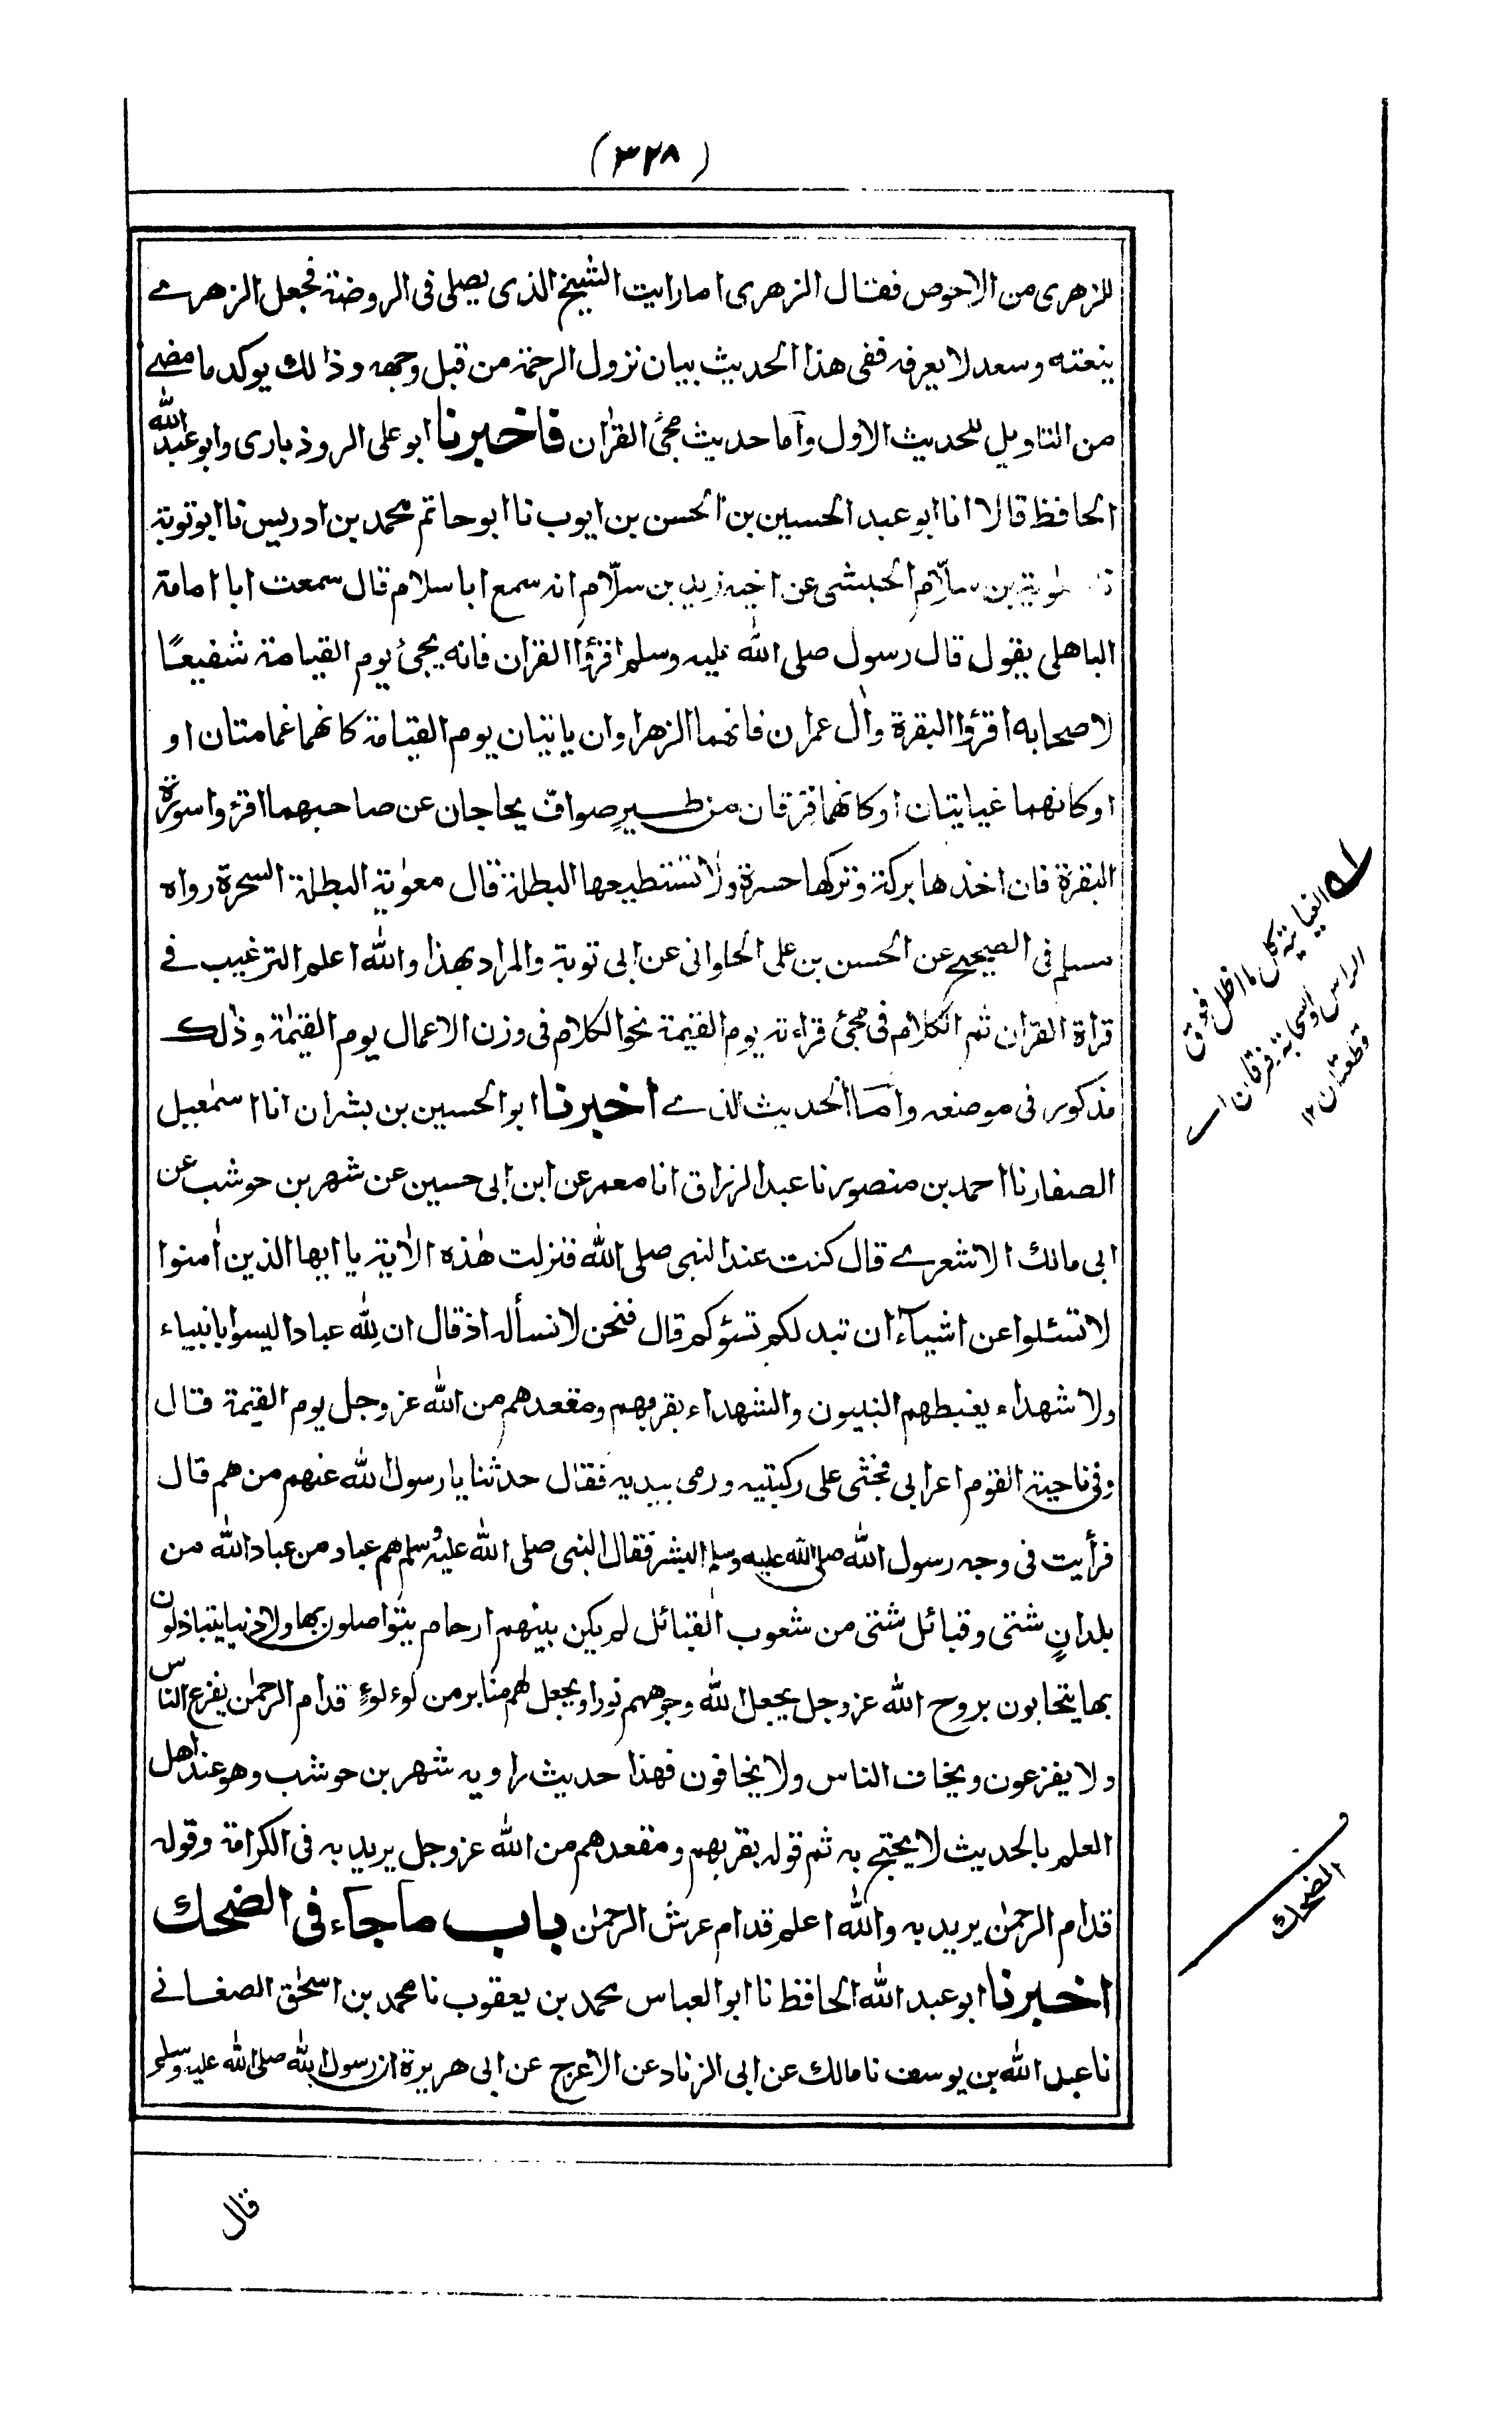 (٣٢٨)
للزهرى من الاحوص فقال الزهرى اما رايت الشيخ الذى يصلى فى الروضة فجعل الزهرے
ينعته وسعد لا يعرفه ففى هذا الحديث بيان نزول الرحمة من قبل وجهه وذالك يوكد ما مضے
من التاويل للحديث الاول واما حديث مجئ القرٰان فاخبرنا ابو على الروذبارى وابو عبد الله
الحافظ قالا انا ابو عبد الحسين بن الحسن بن ايوب نا ابو حاتم محمد بن ادريس نا ابو توبة
بن سلّام الحبشى عن اخيه زيد بن سلّام انه سمع ابا سلام قال سمعت ابا امامة
الباهلى يقول قال رسول صلى الله عليه وسلم اقرؤا القران فانه يجئ يوم القيامة شفيعًا
لاصحابه اقرؤا البقرة واٰل عمران فانهما الزهراوان ياتيان يوم القيامة كانهما غمامتان او
اوكانهما غيايتان اوكانهما فرقان من طيرٍ صوافّ يحاجان عن صاحبهما اقرؤا سورة
البقرة فان اخذها بركة وتركها حسرة ولا تستطيعها البطلة قال معوٰية البطلة السحرة رواه
مسلم فى الصحيح عن الحسن بن على الحلوانى عن ابى توبة والمراد بهذا والله اعلم الترغيب فے
قراة القران ثم الكلام فى مجئ قراءته يوم القيمة نحو الكلام فى وزن الاعمال يوم القيمٰة وذٰلك
مذكور فى موضعه واما الحديث الذے اخبرنا ابو الحسين بن بشران انا اسمٰعيل
الصفار نا احمد بن منصور نا عبد الرزاق انا معمر عن ابن ابى حسين عن شهر بن حوشب عن
ابى مالك الاشعرے قال كنت عند النبى صلى الله فنزلت هٰذه الاٰية يا ايها الذين اٰمنوا
لا تسئلوا عن اشيآء ان تبد لكم تسؤكم قال فنحن لا نسأله اذ قال ان لله عبادا ليسوا بانبياء
ولا شهداء يغبطهم النبيون والشهداء بقربهم ومقعدهم من الله عز وجل يوم القيمة قال
وفى ناحية القوم اعرابى فجثى على ركبتيه ورمى بيديه فقال حدثنا يا رسول الله عنهم من هم قال
فرأيت فى وجه رسول الله صلى الله عليه وسلم البشر فقال النبى صلى الله عليه وسلم هم عباد من عباد الله من
بلدانٍ شتى وقبائل شتى من شعوب القبائل لم يكن بينهم ارحام يتواصلون بها ولا دنيا يتباذلون
بها يتحابون بروح الله عز وجل يجعل الله وجوههم نورا ويجعل لهم منابر من لوءلوءٍ قدام الرحمٰن يفزع الناس
ولا يفزعون ويخاف الناس ولا يخافون فهذا حديث راويه شهر بن حوشب وهو عند اهل
العلم بالحديث لا يحتج به ثم قوله بقربهم ومقعدهم من الله عز وجل يريد به فى الكرامة وقوله
قدام الرحمٰن يريد به والله اعلم قدام عرش الرحمٰن باب ما جاء فى الضحك
اخبرنا ابو عبد الله الحافظ نا ابو العباس محمد بن يعقوب نا محمد بن اسحٰق الصغانے
نا عبد الله بن يوسف نا مالك عن ابى الزناد عن الاعرج عن ابى هريرة ان رسول الله صلى الله عليه وسلم
لے الغياية كل ما اظل فوق
الراس وسحابة فرقان اے
قطعتان ١٢
الضحك
قال